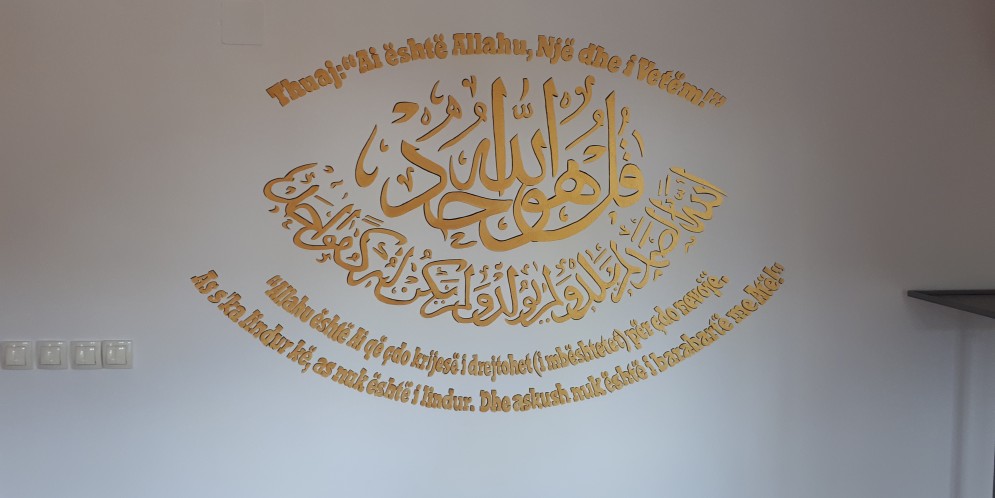 Thuaj:“Ai është Allahu, Një dhe i Vetëm!“
قل هو الله أحد
الله الصمد لم يلد ولم يولد ولم يكن له كفوا أحد
“Allahu është Ai që çdo krijesë i drejtohet (i mbështetet) për çdo nevojë.
As s'ka lindur kë, as nuk është i lindur. Dhe askush nuk është i barabartë me Të!“